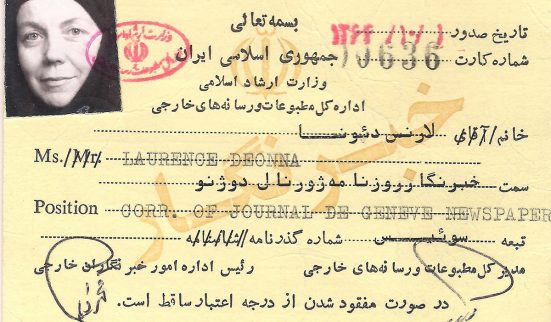 بسمه تعالی
تاریخ صدور
جمهوری اسلامی ایران
شماره کارت 10636
وزارت ارشاد اسلامی
اداره کل مطبوعات و رسانه های خارجی
خانم / آقای لارنس دئونا
Ms./Mr. LAURENCE DEONNA
سمت خبرنگار روزنامه ژورنال دوژنو
Position CORR. OF JOURNAL DE GENEVE NEWSPAPER
تبعه سوئیس شماره گذرنامه
مدیر کل مطبوعات و رسانه های خارجی رئیس اداره امور خبرنگاران خارجی
در صورت مفقود شدن از درجه اعتبار ساقط است.
خبرنگار